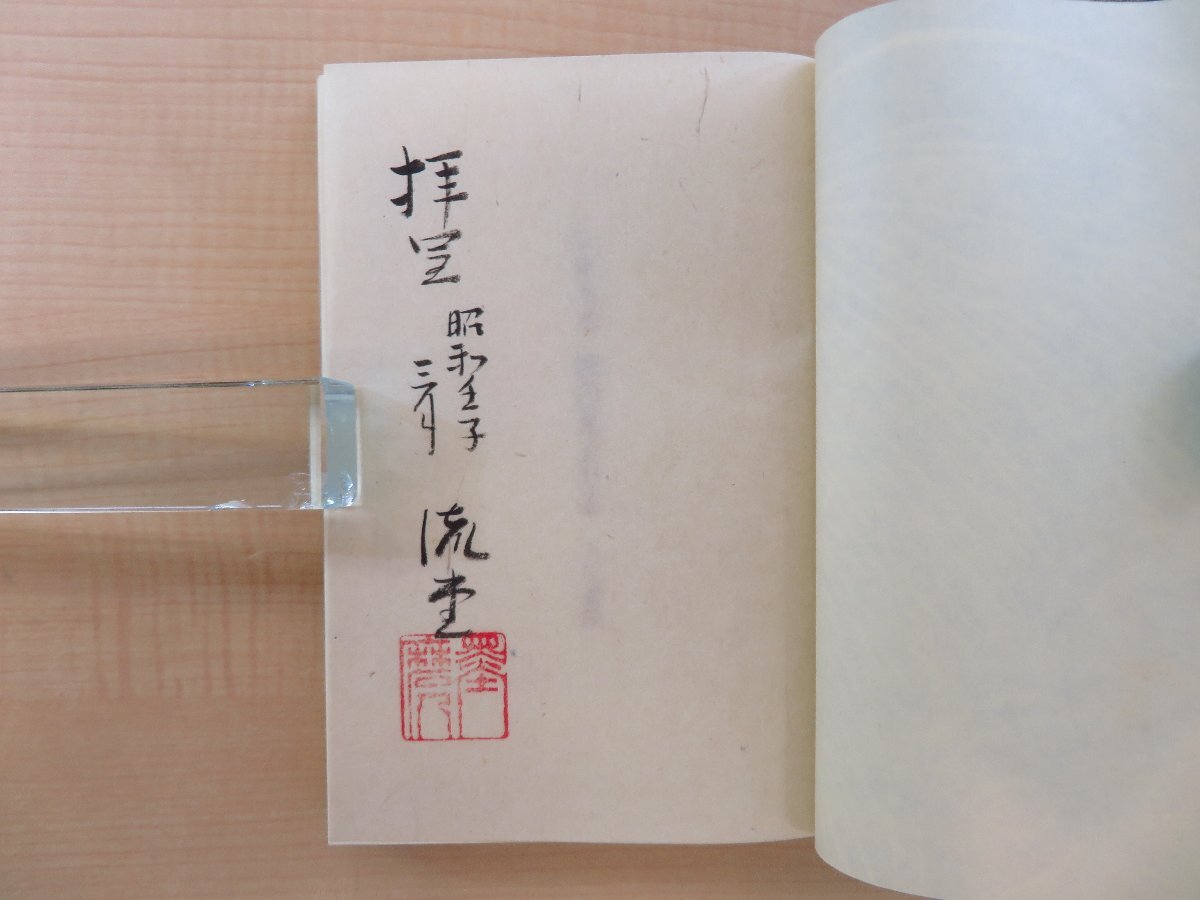 拝呈
昭和壬子
三月
流堂